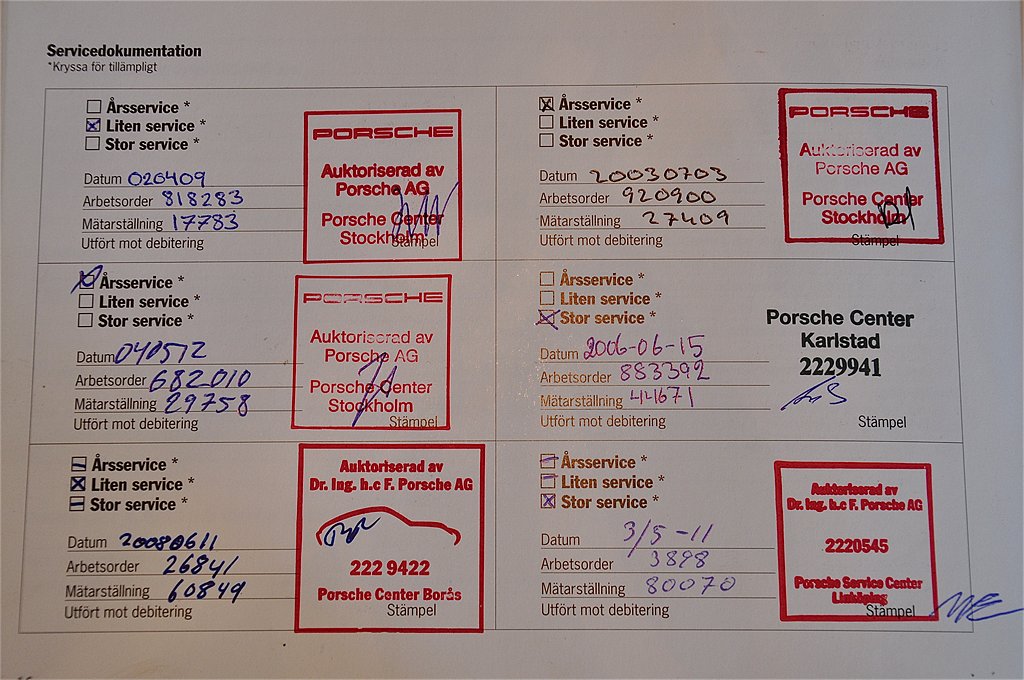 Servicedokumentation
*Kryssa för tillämpligt
Årsservice *
Liten service *
Stor service *
Datum 020409
Arbetsorder 818283
Mätarställning 17783
Utfört mot debitering
PORSCHE
Auktoriserad av
Porsche AG
Porsche Center
Stockholm
Stämpel
Årsservice *
Liten service *
Stor service *
Datum 20030703
Arbetsorder 920900
Mätarställning 27409
Utfört mot debitering
PORSCHE
Auktoriserad av
Porsche AG
Porsche Center
Stockholm
Stämpel
Årsservice *
Liten service *
Stor service *
Datum 040512
Arbetsorder 682010
Mätarställning 29758
Utfört mot debitering
PORSCHE
Auktoriserad av
Porsche AG
Porsche Center
Stockholm
Stämpel
Årsservice *
Liten service *
Stor service *
Datum 2006-06-15
Arbetsorder 883392
Mätarställning 44671
Utfört mot debitering
Porsche Center
Karlstad
2229941
Stämpel
Årsservice *
Liten service *
Stor service *
Datum 20080611
Arbetsorder 26841
Mätarställning 60849
Utfört mot debitering
Auktoriserad av
Dr. Ing. h.c F. Porsche AG
222 9422
Porsche Center Borås
Stämpel
Årsservice *
Liten service *
Stor service *
Datum 3/5-11
Arbetsorder 3898
Mätarställning 80070
Utfört mot debitering
Auktoriserad av
Dr. Ing. h.c F. Porsche AG
2220545
Porsche Service Center
Linköping
Stämpel